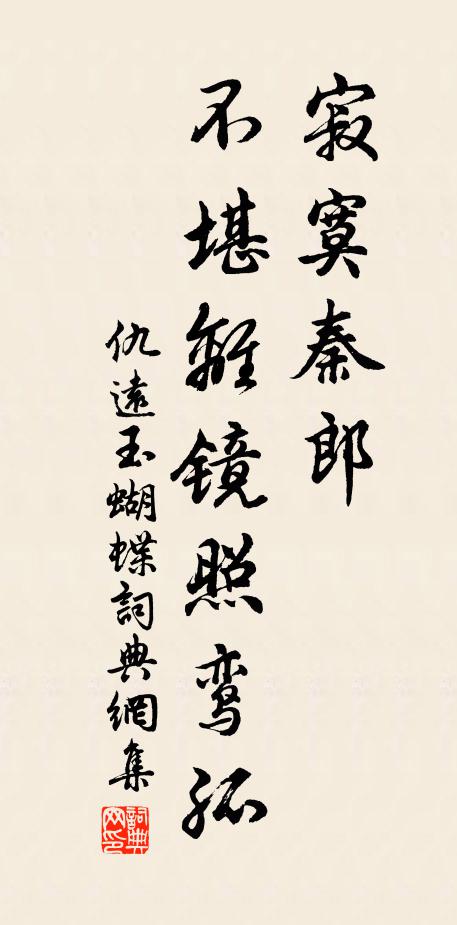 寂寞秦郎
不堪離镜照鸾孤
仇遠玉蝴蝶詞典網集
詞典网印